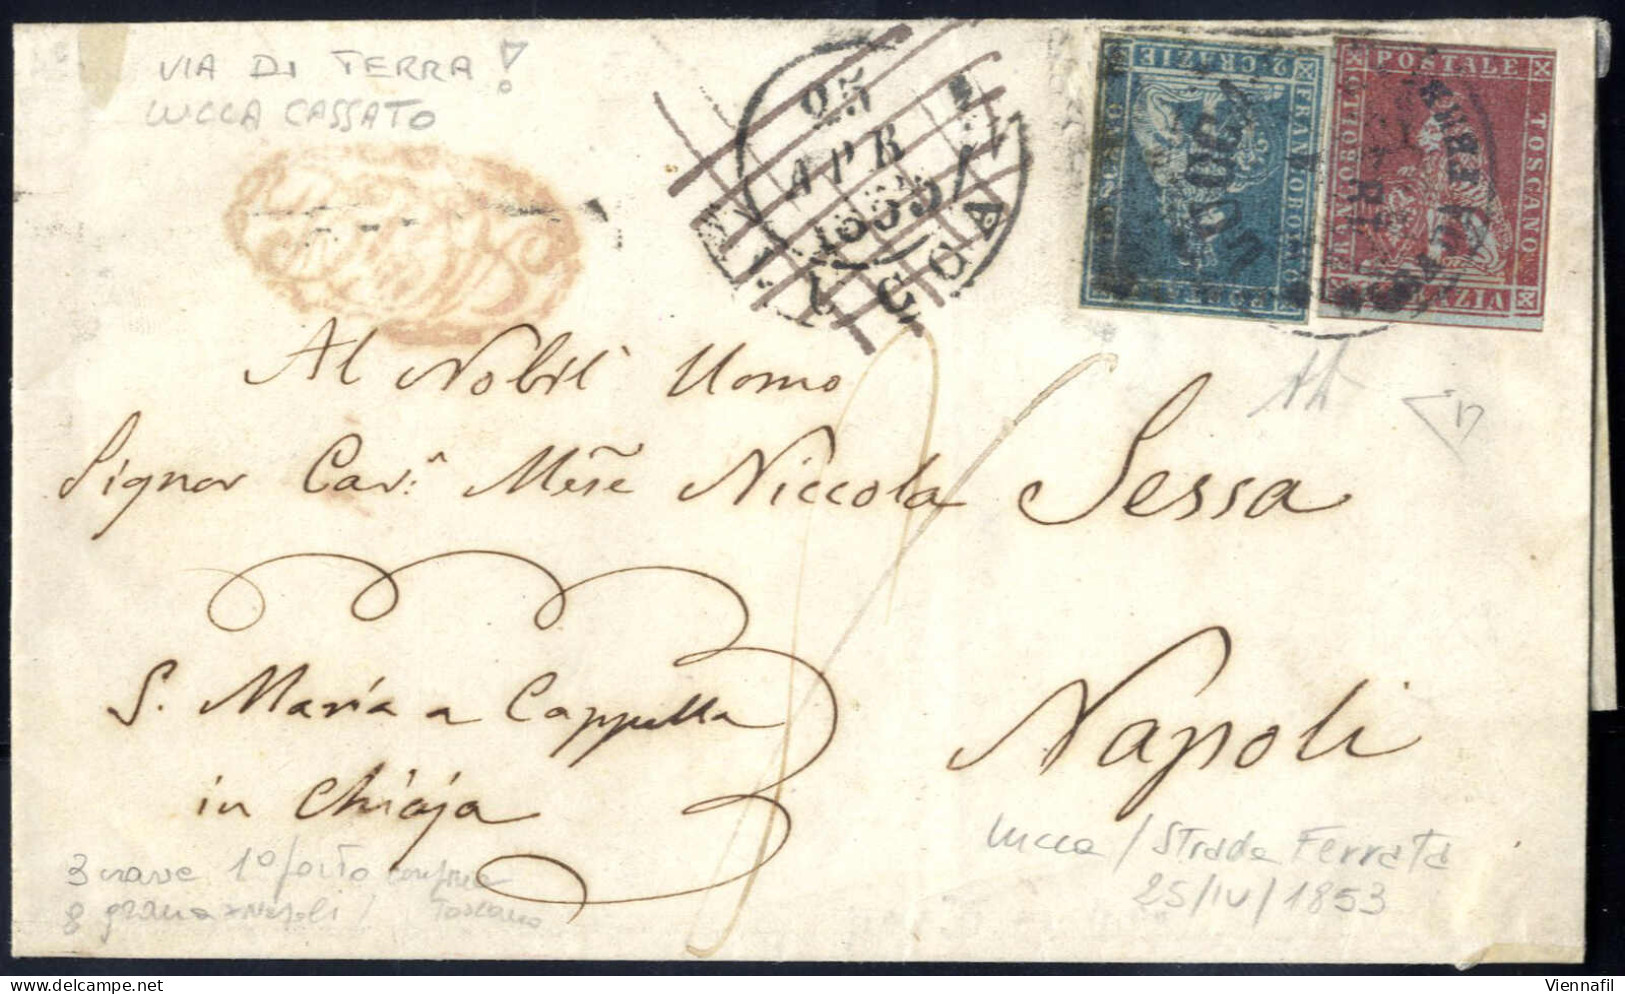 VIA DI TERRA!
LUCCA CASSATO
25
APR
1853
LUCCA
2·CRAZIE
FRANCOBOLLO
POSTALE
TOSCANO
FRANCOBOLLO
1 CRAZIA
Al Nobil' Uomo
Signor Cav.r Mese Niccola Sessa
S. Maria a Cappella
in Chiaja
Napoli
Lucca / Strada Ferrata
25/IV/1853
3 crazie 1° porto
8 grana Napoli / Toscano
Viennafil